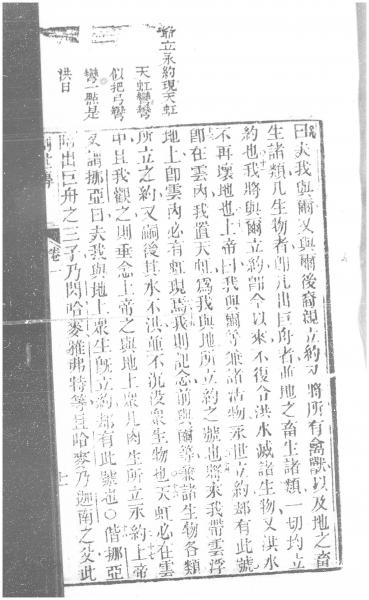 立永約現天虹
天虹彎彎
似把弓彎
彎一點是
洪日
曰夫我與爾又與爾後裔親立約又將所有禽獸以及地之畜
生諸類凡生物者即凡出巨舟者並地之畜生諸類一切均立
約也我將與爾立約即今以來不復令洪水滅諸生物又洪水
不再壞地也上帝曰我與爾等兼諸活物永世立約却有此號
卽在雲內我置天虹爲我與地所立約之號也將來我帶雲浮
地上卽雲內必有虹現焉我則記念前與爾等兼諸生物各類
所立之約又嗣後其水不洪並不沉沒衆生物也天虹必在雲
中且我觀之則垂念上帝之與地上衆凡肉生所立永約上帝
又謂挪亞曰夫我與地上衆生旣立約却有此號也○偕挪亞
出巨舟之三子乃閃哈麥雅弗特等且哈麥乃迦南之父此
卷一